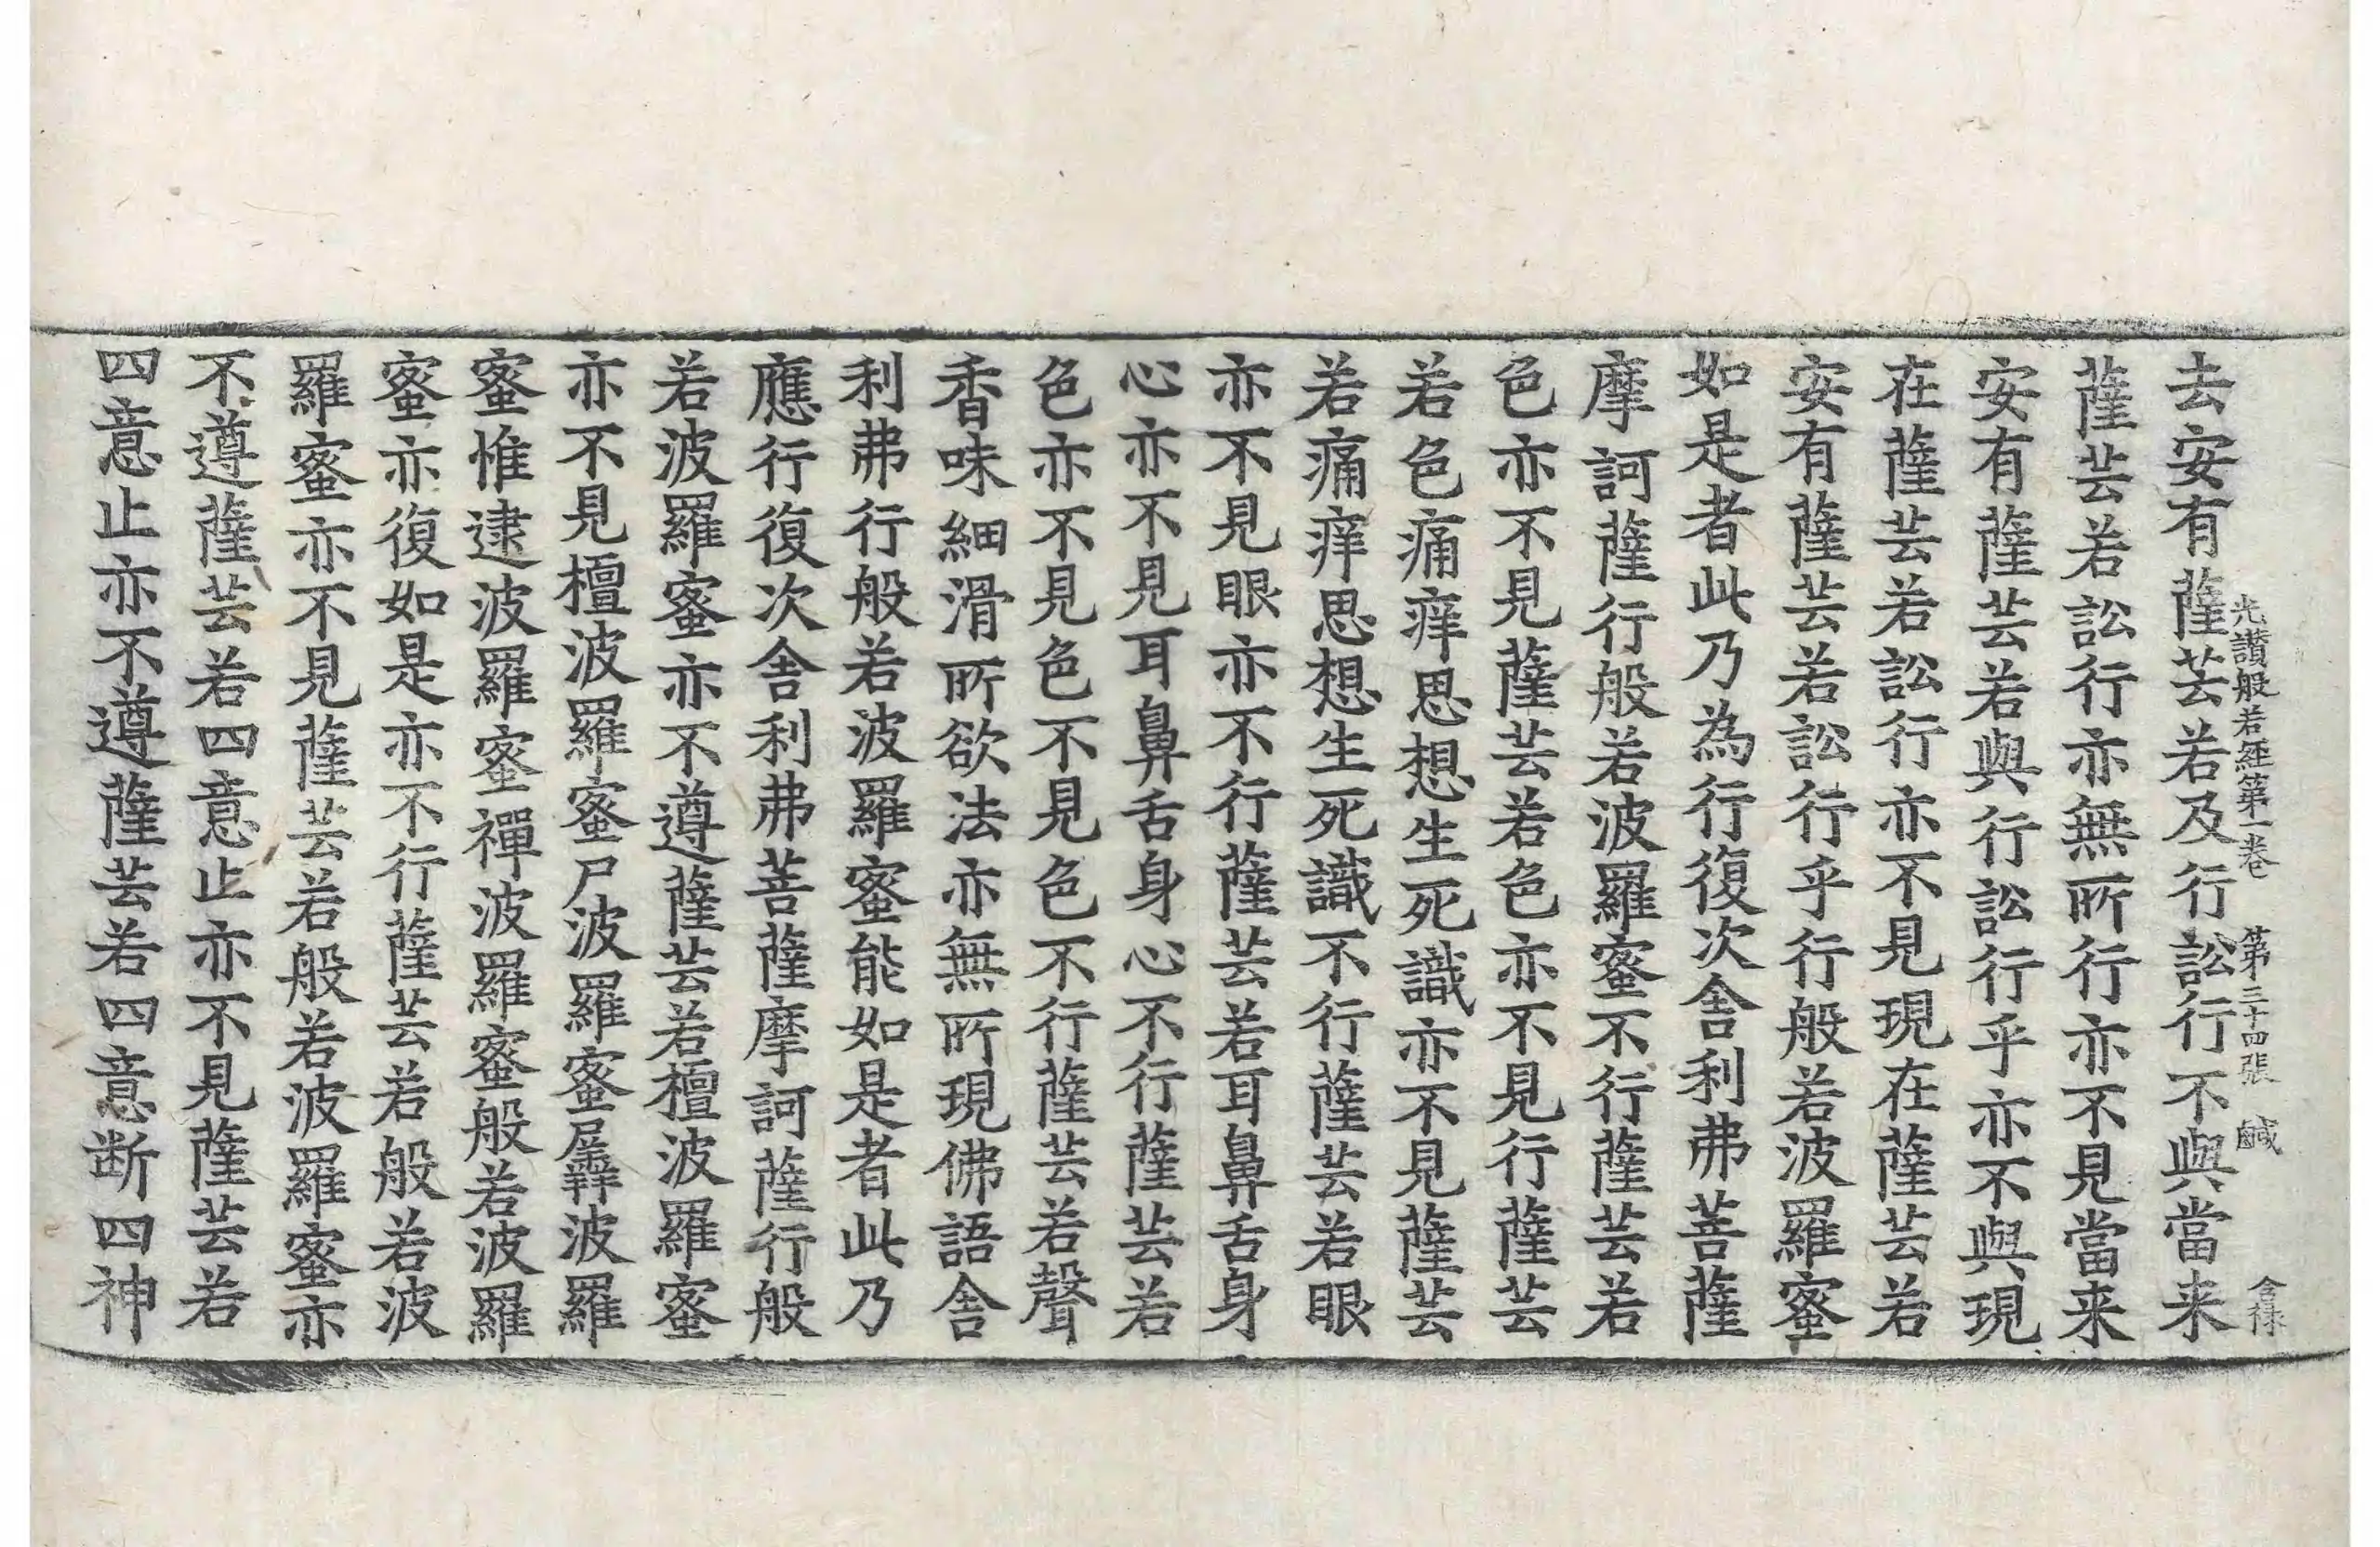 光讚般若經第一卷 第三十四張 鹹 令祿
去安有薩芸若及行訟行不與當来
薩芸若訟行亦無所行亦不見當来
安有薩芸若與行訟行乎亦不與現
在薩芸若訟行亦不見現在薩芸若
安有薩芸若訟行乎行般若波羅蜜
如是者此乃為行復次舍利弗菩薩
摩訶薩行般若波羅蜜不行薩芸若
色亦不見薩芸若色亦不見行薩芸
若色痛痒思想生死識亦不見薩芸
若痛痒思想生死識不行薩芸若眼
亦不見眼亦不行薩芸若耳鼻舌身
心亦不見耳鼻舌身心不行薩芸若
色亦不見色不見色不行薩芸若聲
香味細滑所欲法亦無所現佛語舍
利弗行般若波羅蜜能如是者此乃
應行復次舍利弗菩薩摩訶薩行般
若波羅蜜亦不遵薩芸若檀波羅蜜
亦不見檀波羅蜜尸波羅蜜羼波羅
蜜惟逮波羅蜜禪波羅蜜般若波羅
蜜亦復如是亦不行薩芸若般若波
羅蜜亦不見薩芸若般若波羅蜜亦
不遵薩芸若四意止亦不見薩芸若
四意止亦不遵薩芸若四意断四神